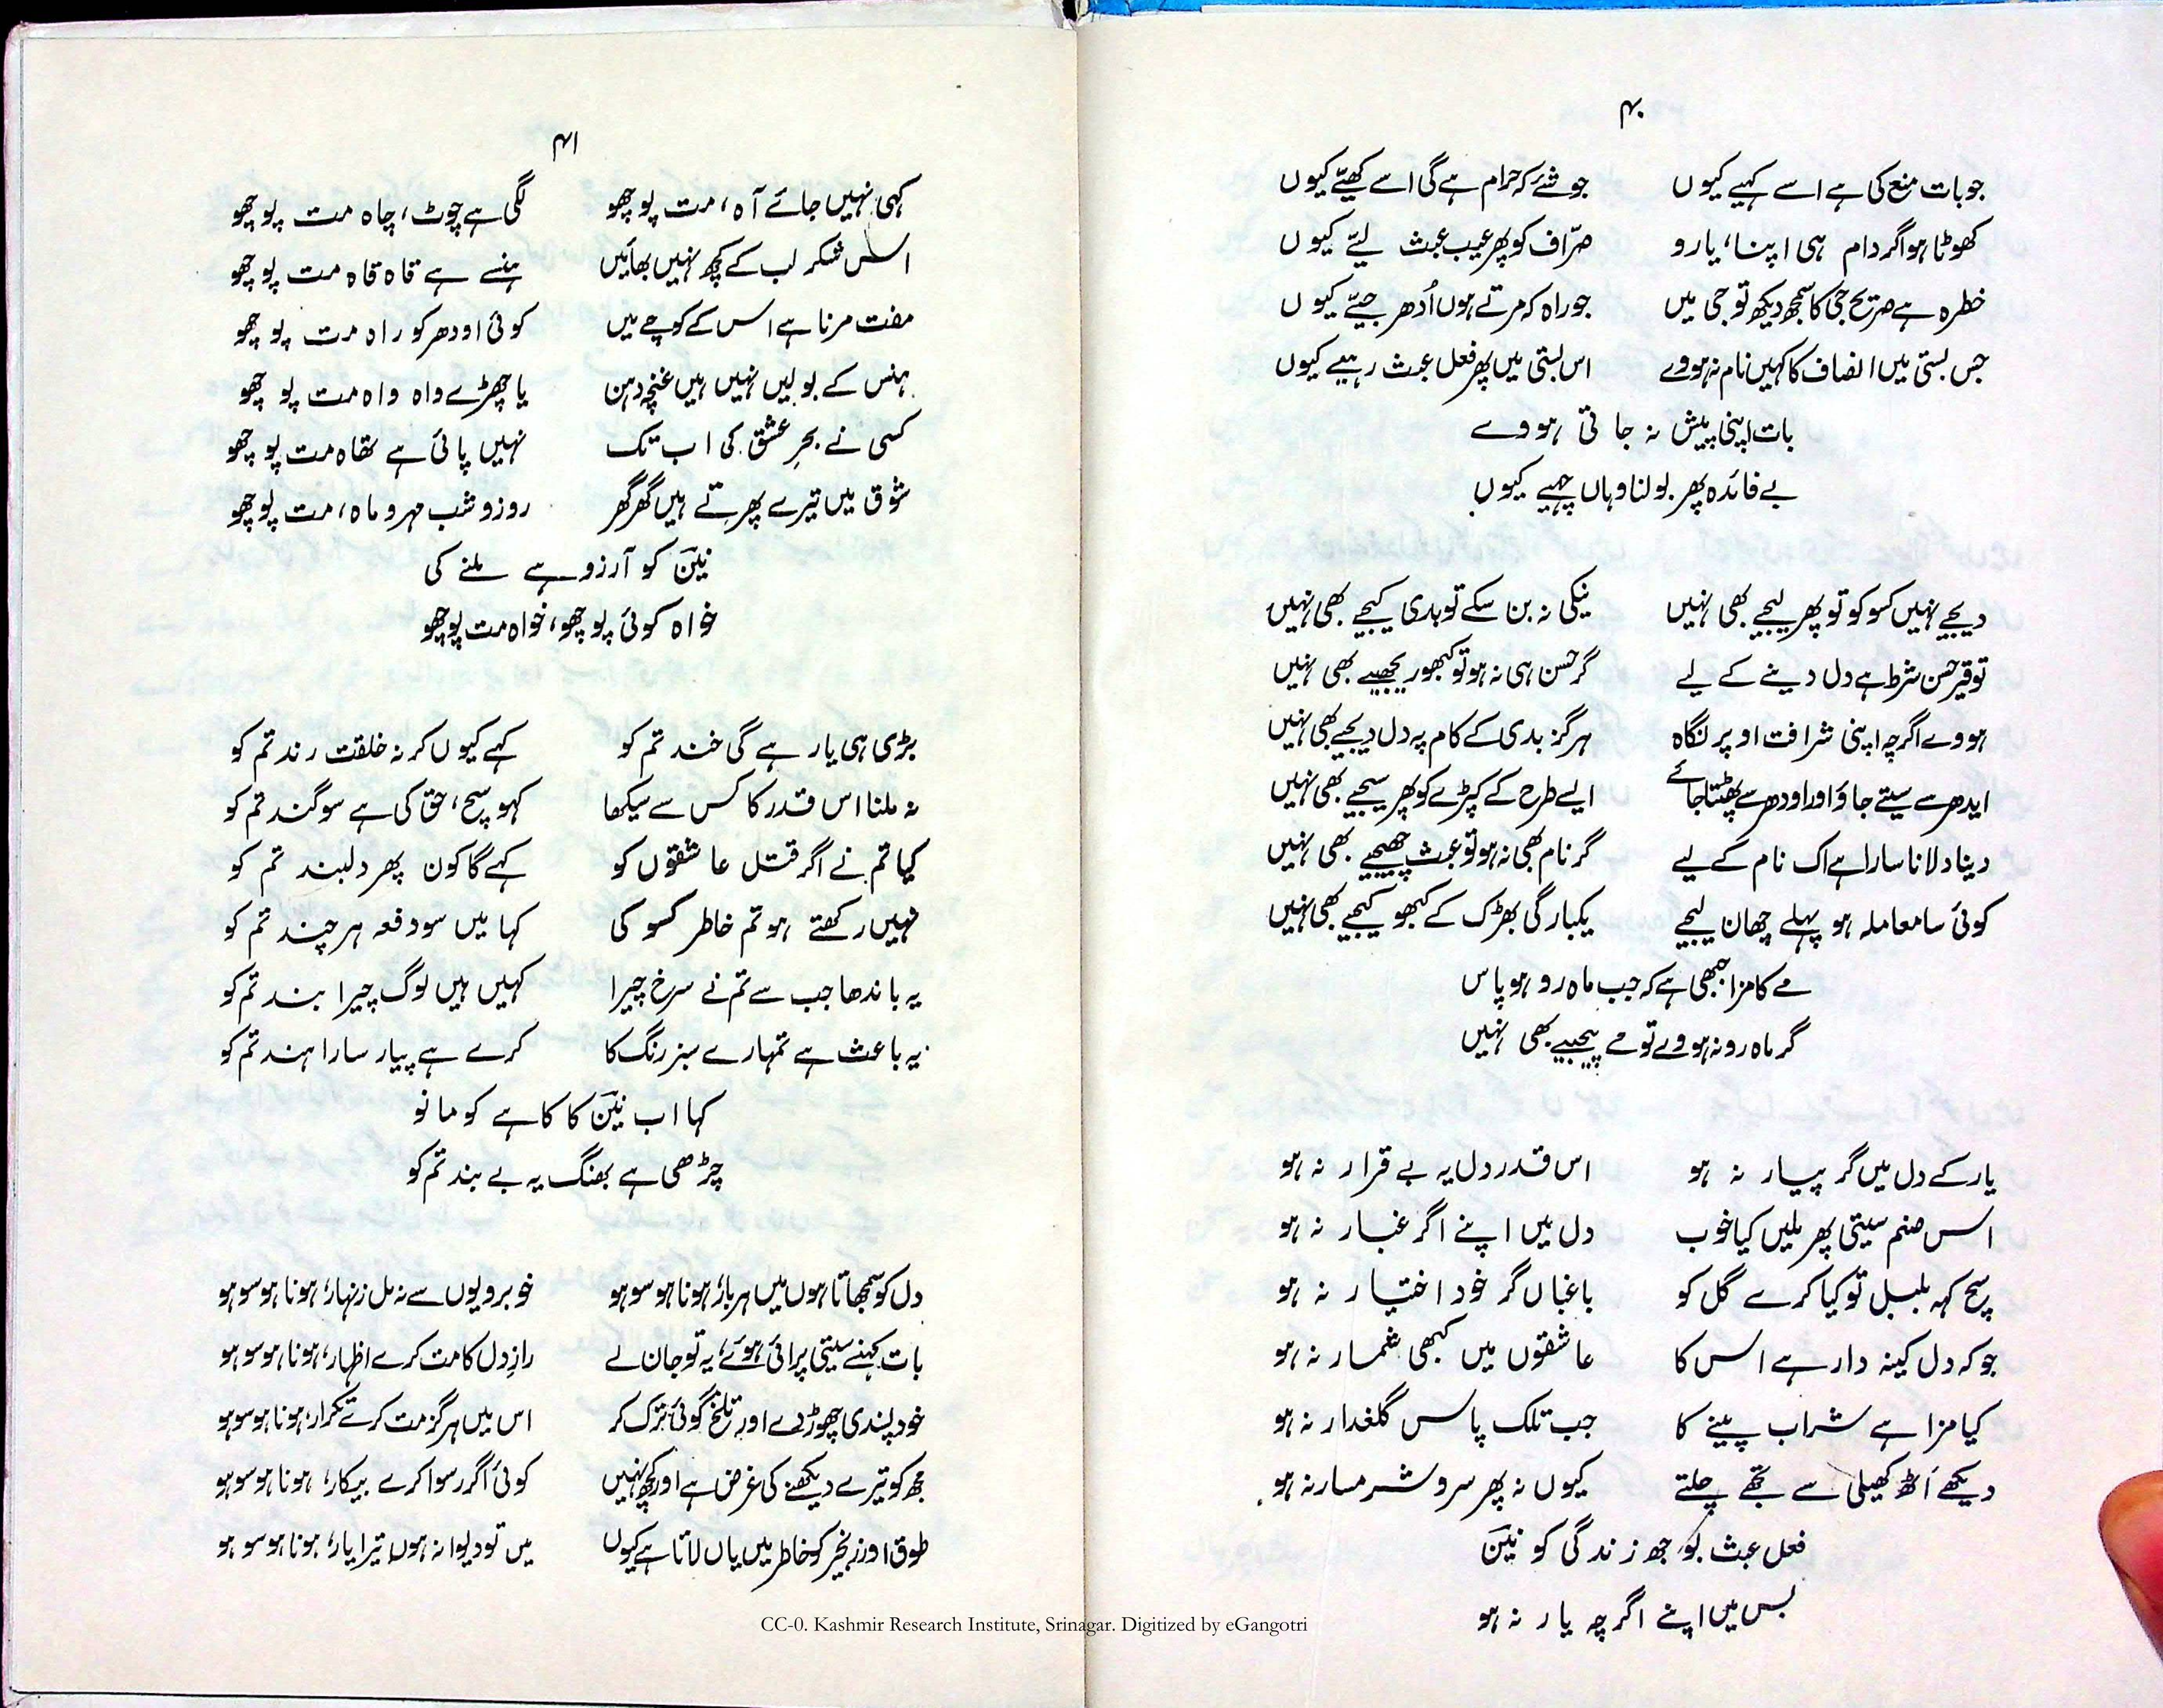 ۴۰
جو بات منع کی ہے اسے کہیے کیوں جو شئے کہ حرام ہے گی اسے کھیئے کیوں
کھوٹا ہو اگر دام ہی اپنا، یارو صرّاف کو پھر عیب عبث لیئے کیوں
خطرہ ہے صریح جی کا سمجھ دیکھ تو جی میں جو راہ کہ مرتے ہوں اُدھر جیئے کیوں
جس بستی میں انصاف کا کہیں نام نہ ہووے اس بستی میں پھر فعل عبث رہیے کیوں
بات اپنی پیش نہ جاتی ہووے
بے فائدہ پھر بولنا وہاں چہیے کیوں
دیجے نہیں کسو کو تو پھر لیجے بھی نہیں نیکی نہ بن سکے تو بدی کیجے بھی نہیں
توقیر حسن شرط ہے دل دینے کے لیے گر حسن ہی نہ ہو تو کبھو ریجھیے بھی نہیں
ہووے اگرچہ اپنی شرافت اوپر نگاہ ہرگز بدی کے کام پہ دل دیجے بھی نہیں
ایدھر سے سیتے جاؤ اور اودھر سے پھٹتا جائے ایسے طرح کے کپڑے کو پھر سیجے بھی نہیں
دینا دلانا سارا ہے اک نام کے لیے گر نام بھی نہ ہو تو عبث چھیجے بھی نہیں
کوئی سا معاملہ ہو پہلے چھان لیجے یکبارگی بھڑک کے کبھو کیجے بھی نہیں
مے کا مزا جبھی ہے کہ جب ماہ رو ہو پاس
گر ماہ رو نہ ہووے تو مے پیجیے بھی نہیں
یار کے دل میں گر پیار نہ ہو اس قدر دل یہ بے قرار نہ ہو
اس صنم سیتی پھر ملیں کیا خوب دل میں اپنے اگر غبار نہ ہو
سچ کہہ بلبل تو کیا کرے گل کو باغباں گر خود اختیار نہ ہو
جو کہ دل کینہ دار ہے اس کا عاشقوں میں کبھی شمار نہ ہو
کیا مزا ہے شراب پینے کا جب تلک پاس گلغدار نہ ہو
دیکھے اَٹھ کھیلی سے تجھے چلتے کیوں نہ پھر سرو شرمسار نہ ہو
فعل عبث بوجھ زندگی کو نینؔ
بس میں اپنے اگرچہ یار نہ ہو
۴۱
کہی نہیں جائے آہ، مت پوچھو لگی ہے چوٹ، چاہ مت پوچھو
اس شکر لب کے کچھ نہیں بھائیں ہنسے ہے قاہ قاہ مت پوچھو
مفت مرنا ہے اس کے کوچے میں کوئی اودھر کو راہ مت پوچھو
ہنس کے بولیں نہیں ہیں غنچہ دہن یا چھڑے واہ واہ مت پوچھو
کسی نے بحرِ عشق کی اب تک نہیں پائی ہے تھاہ مت پوچھو
شوق میں تیرے پھرتے ہیں گھر گھر روز و شب مہر و ماہ، مت پوچھو
نینؔ کو آرزو ہے ملنے کی
خواہ کوئی پوچھو، خواہ مت پوچھو
بڑی ہی یار ہے گی خند تم کو کہے کیوں کر نہ خلقت رند تم کو
نہ ملنا اس قدر کا کس سے سیکھا کہو سچ، حق کی ہے سوگند تم کو
کیا تم نے اگر قتل عاشقوں کو کہے گا کون پھر دلبند تم کو
نہیں رکھتے ہو تم خاطر کسو کی کہا میں سو دفعہ ہرچند تم کو
یہ باندھا جب سے تم نے سرخ چیرا کہیں ہیں لوگ چیرا بند تم کو
یہ باعث ہے تمہارے سبز رنگ کا کرے ہے پیار سارا ہند تم کو
کہا اب نینؔ کا کاہے کو مانو
چڑھی ہے بھنگ یہ بے بند تم کو
دل کو سمجھاتا ہوں میں ہر بار؛ ہونا ہو سو ہو خوبرویوں سے نہ مل زنہار؛ ہونا ہو سو ہو
بات کہنے سیتی پرائی ہوئے؛ یہ تو جان لے رازِ دل کا مت کرے اظہار؛ ہونا ہو سو ہو
خود پسندی چھوڑ دے اور تلخ گوئی ترک کر اس میں ہرگز مت کرے تکرار؛ ہونا ہو سو ہو
مجھ کو تیرے دیکھنے کی غرض ہے اور کچھ نہیں کوئی اگر رسوا کرے بیکار؛ ہونا ہو سو ہو
طوق اور زنجیر کو خاطر میں یاں لاتا ہے کیوں میں تو دیوانہ ہوں تیرا یار؛ ہونا ہو سو ہو
CC-0. Kashmir Research Institute, Srinagar. Digitized by eGangotri